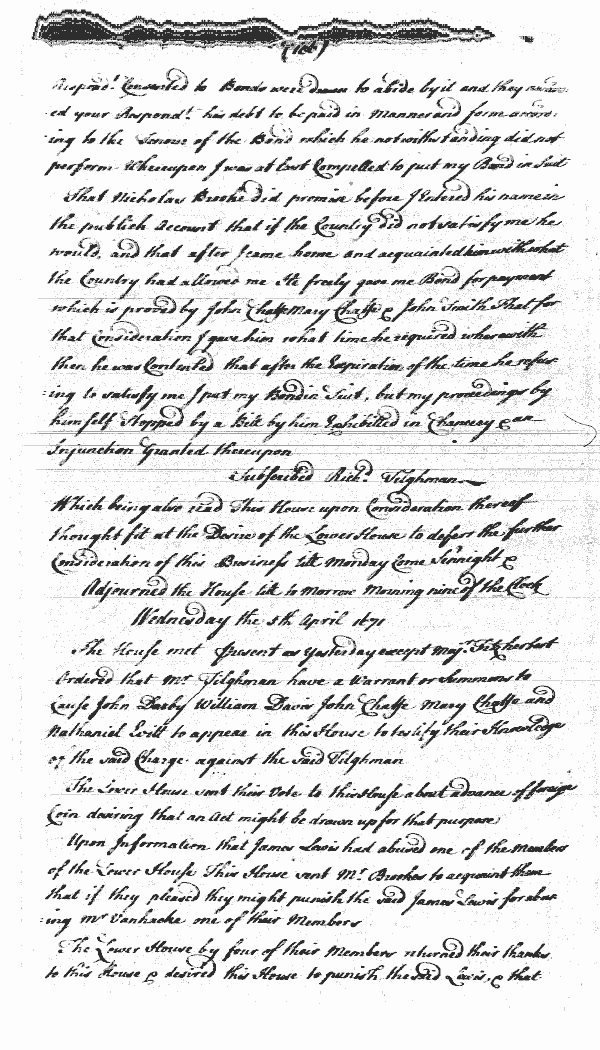 Respond.t Consented to Bonds were drawn to abide by it and they
ed your Respond.t his debt to be paid in Manner and form accord:
ing to the Tenour of the Bond which he notwithstanding did not
perform Whereupon I was at last Compelled to put my Bond in Suit
That Nicholas Brooke did promise before I Entered his name in
the publick Account that if the Country did not satisfy me he
would, and that after I came home and acquainted him with what
the Country had allowed me He freely gave me Bond for payment
which is proved by John Chaffe Mary Chaffe & John Smith That for
that Consideration I gave him what time he required wherewith
then he was Contented that after the Expiration of the time he refus
ing to satisfy me I put my Bond in Suit, but my proceedings by
himself Stopped by a Bill by him Exhibitted in Chancery & an
Injunction Granted thereupon
Subscribed Rich.d Tilghman
Which being also read This House upon Consideration thereof
thought fit at the Desire of the Lower House to deferr the further
Consideration of this Business till Monday Come Se'nnight &
Adjourned the House till to Morrow Morning nine of the Clock
Wednesday the 5th April 1671
The House met Present as Yesterday except Maj.r Fitzherbert
Ordered that Mr Tilghman have a Warrant or Summons to
Cause John Darby William Davis John Chaffe Mary Chaffe and
Nathaniel Evitt to appear in this House to testify their Knowledge
of the said Charge against the said Tilghman
The Lower House sent their Vote to this House about advance of foreign
Coin desiring that an Act might be drawn up for that purpose
Upon Information that James Lewis had abused one of the Members
of the Lower House This House sent Mr. Brookes to acquaint them
that if they pleased they might punish the said James Lewis for abus
:ing Mr Vanhacke one of their Members
The Lower House by four of their Members returned their thanks
to this House & desired this House to punish the said Lewis, & that